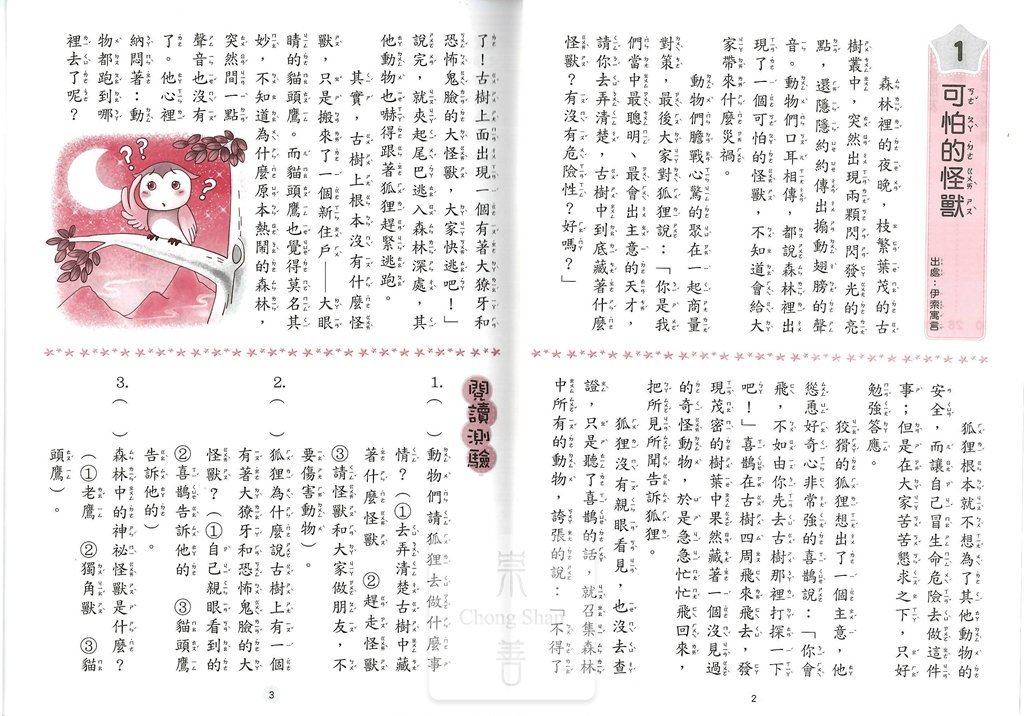 1
可怕的怪獸
出處：伊索寓言
森林裡的夜晚，枝繁葉茂的古
樹叢中，突然出現兩顆閃閃發光的亮
點，還隱隱約約傳出搧動翅膀的聲
音。動物們口耳相傳，都說森林裡出
現了一個可怕的怪獸，不知道會給大
家帶來什麼災禍。
動物們膽戰心驚的聚在一起商量
對策，最後大家對狐狸說：「你是我
們當中最聰明、最會出主意的天才，
請你去弄清楚，古樹中到底藏著什麼
怪獸？有沒有危險性？好嗎？」
狐狸根本就不想為了其他動物的
安全，而讓自己冒生命危險去做這件
事；但是在大家苦苦懇求之下，只好
勉強答應。
狡猾的狐狸想出了一個主意，他
慫恿好奇心非常強的喜鵲說：「你會
飛，不如由你先去古樹那裡打探一下
吧！」喜鵲在古樹四周飛來飛去，發
現茂密的樹葉中果然藏著一個沒見過
的奇怪動物，於是急急忙忙飛回來，
把所見所聞告訴狐狸。
狐狸沒有親眼看見，也沒去查
證，只是聽了喜鵲的話，就召集森林
中所有的動物，誇張的說：「不得了
2
了！古樹上面出現一個有著大獠牙和
恐怖鬼臉的大怪獸，大家快逃吧！」
說完，就夾起尾巴逃入森林深處，其
他動物也嚇得跟著狐狸趕緊逃跑。
其實，古樹上根本沒有什麼怪
獸，只是搬來了一個新住戶——大眼
睛的貓頭鷹。而貓頭鷹也覺得莫名其
妙，不知道為什麼原本熱鬧的森林，
突然間一點
聲音也沒有
了。他心裡
納悶著：動
物都跑到哪
裡去了呢？
? ? ?
閱讀測驗
1.（　）動物們請狐狸去做什麼事
情？（①去弄清楚古樹中藏
著什麼怪獸　②趕走怪獸
③請怪獸和大家做朋友，不
要傷害動物）。
2.（　）狐狸為什麼說古樹上有一個
有著大獠牙和恐怖鬼臉的大
怪獸？（①自己親眼看到的
②喜鵲告訴他的　③貓頭鷹
告訴他的）。
3.（　）森林中的神祕怪獸是什麼？
（①老鷹　②獨角獸　③貓
頭鷹）。
3
崇善
Chong Shan